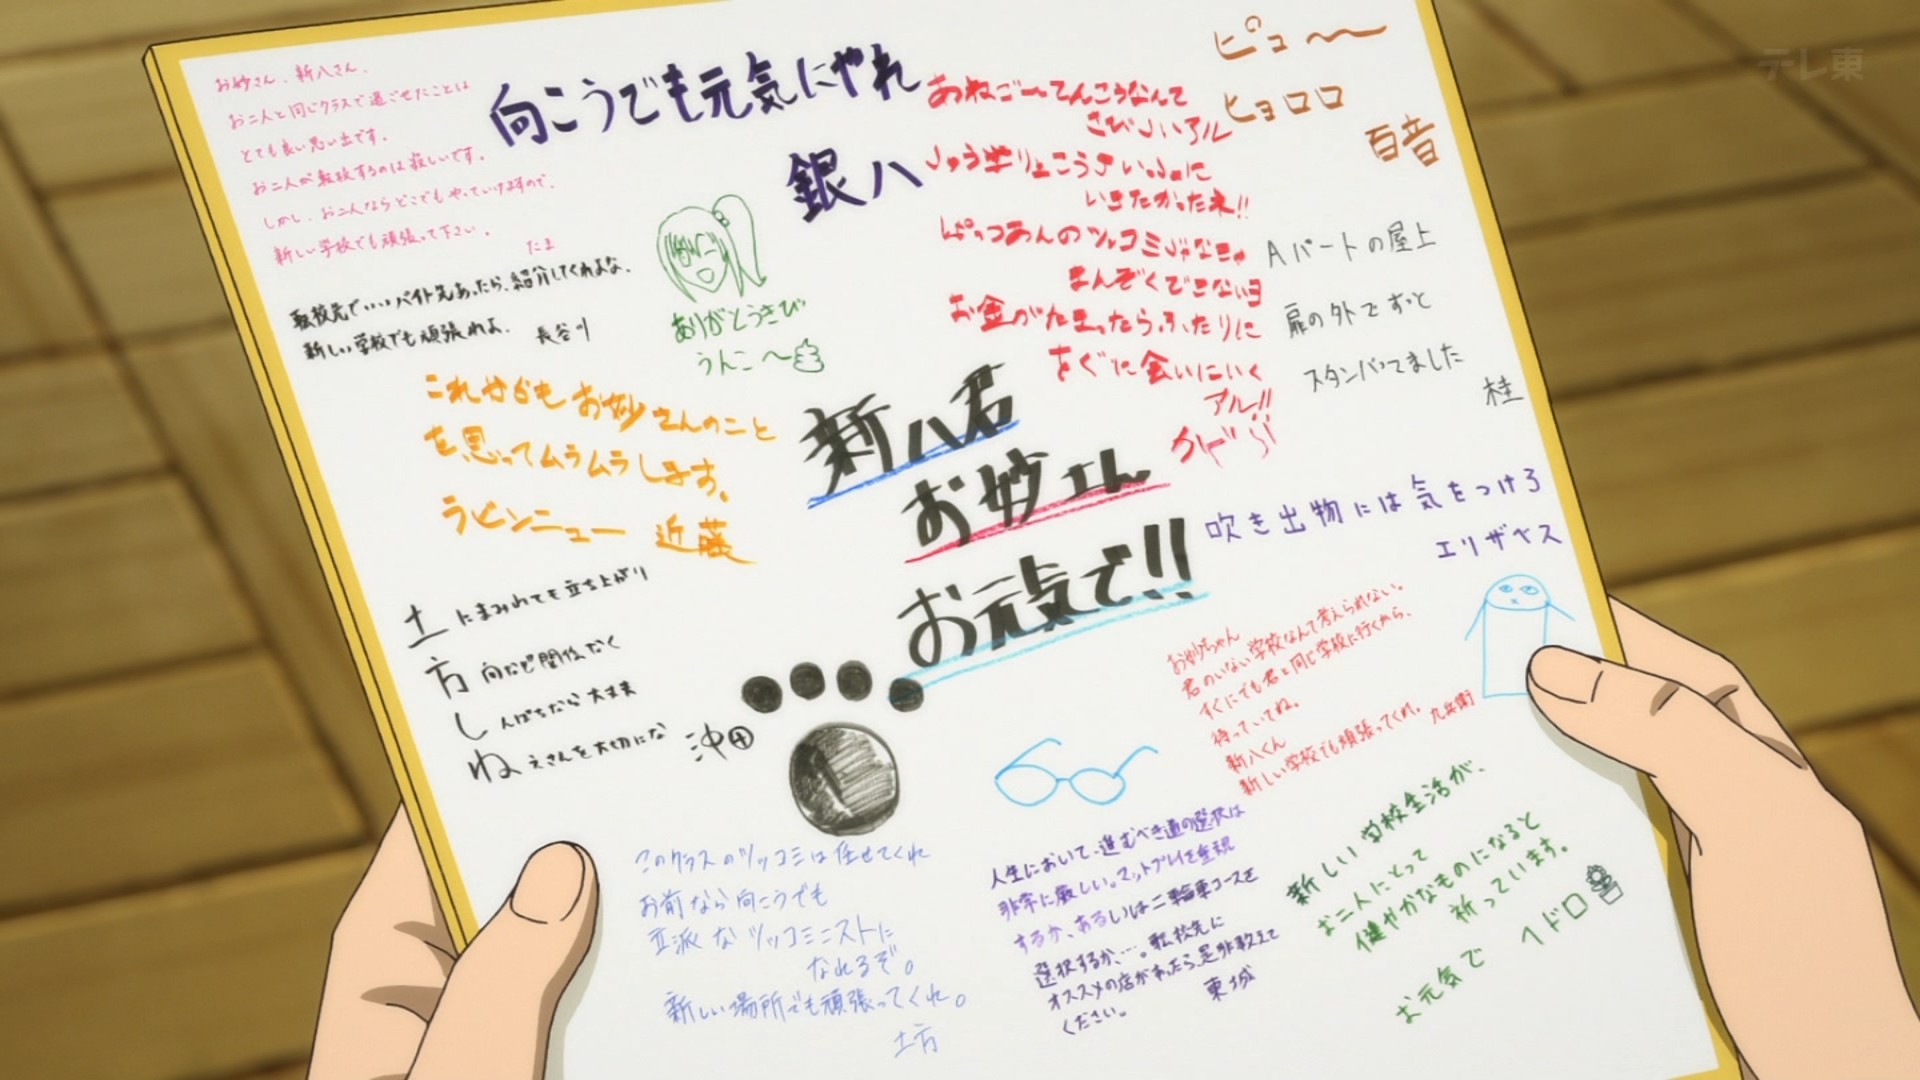 お妙さん、新八さん、
お二人と同じクラスで過ごせたことは
とても良い思い出です。
お二人が転校するのは寂しいです。
しかし、お二人ならどこでもやっていけますので、
新しい学校でも頑張って下さい。
たま
転校先でいいバイト先あったら、紹介してくれよな。
新しい学校でも頑張れよ。
長谷川
向こうでも元気にやれ
銀八
ありがとうきび
うんこ〜
おねごーてんこうなんて
さびしいアル
しゅう学りょこういっしょに
いきたかったネ!!
ぱっつあんのツッコミじゃなきゃ
まんぞくできないヨ
お金がたまったらふたりに
すぐに会いにいく
アル!!
かぐら
ピュ〜〜
ヒョロロ
百音
Aパートの屋上
扉の外でずっと
スタンバってました
桂
これからもお妙さんのこと
を思ってムラムラします。
ラビンニュー 近藤
新八君
お妙さん
お元気で!!
吹き出物には気をつけろ
エリザベス
土にまみれても立ち上がり
方向など関係なく
しんぱちなら大丈夫
ねえさんを大切にな
沖田
お妙ちゃん
君のいない学校なんて考えられない。
すぐにでも君と同じ学校に行くから、
待っていてね。
新八くん
新しい学校でも頑張ってくれ。
九兵衛
このクラスのツッコミは任せてくれ
お前なら向こうでも
立派なツッコミニストに
なれるぞ。
新しい場所でも頑張ってくれ。
土方
人生において、進むべき道の選択は
非常に厳しい。マットプレイを重視
するか、あるいは二輪車コースを
選択するか…。転校先に
オススメの店があったら、是非教えて
ください。
東城
新しい学校生活が、
お二人にとって
健やかなものになると
祈っています。
お元気で
ヘドロ
テレ東